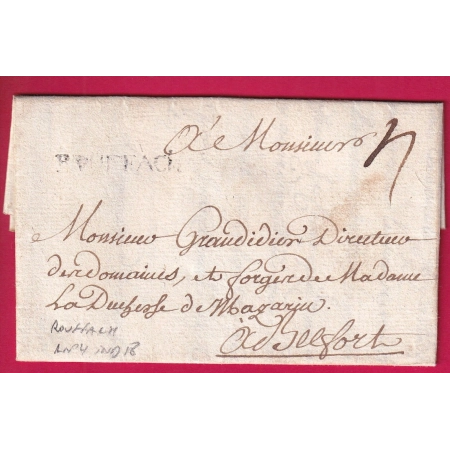 A Monsieur
ROUFFACH
Monsieur Grandidier Directeur
des domaines, et forges de Madame
La Duchesse de Mazarin.
A Belfort
ROUFFACH
IND 18